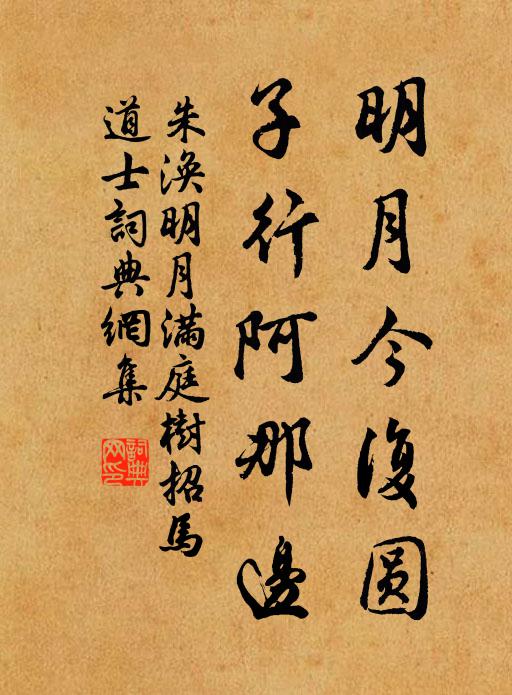 明月今復圆
子行阿那邊
朱渙明月滿庭樹招馬
道士詞典網集
詞典网印